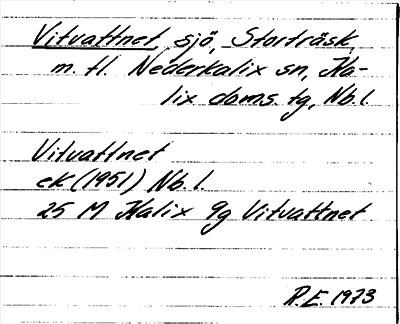 Vitvattnet, sjö, Storträsk
m. fl. Nederkalix sn, Ka-
lix doms. tg, Nb. l.
Vitvattnet
ek (1951) Nb. l.
25 M Kalix 9g Vitvattnet
R.E. 1973